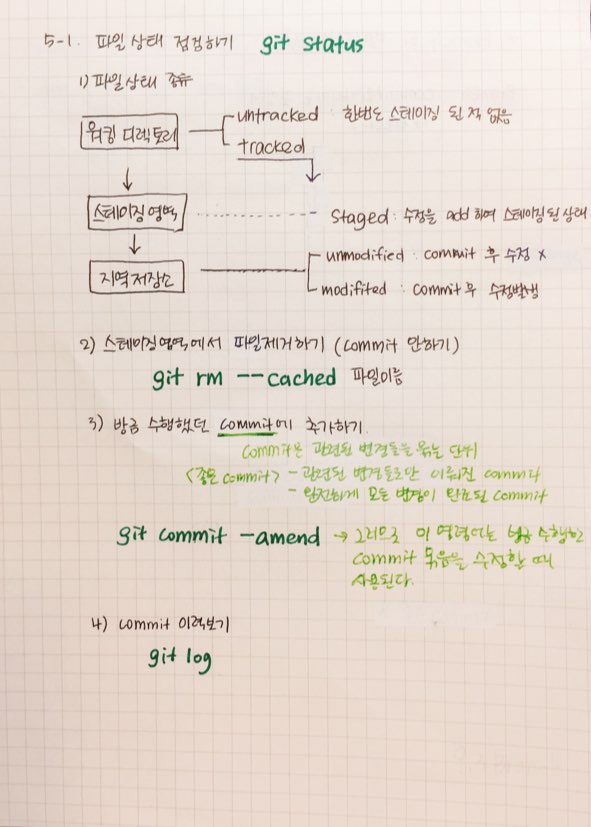 5-1. 파일 상태 점검하기 git status
1) 파일상태 종류
워킹 디렉토리
untracked : 한번도 스테이징 된 적 없음
tracked
스테이징영역
Staged : 수정을 add 하여 스테이징된 상태
지역저장소
unmodified : commit 후 수정 x
modifited : commit 후 수정발생
2) 스테이징영역에서 파일제거하기 (commit 안하기)
git rm --cached 파일이름
3) 방금 수행했던 commit에 추가하기.
commit은 관련된 변경들을 묶는 단위
<좋은 commit> - 관련된 변경들로만 이뤄진 commit
- 완전하게 모든 변경이 완료된 commit
git commit -amend → 그러므로 이 명령어는 방금 수행한
commit 묶음을 수정할 때
사용된다.
4) commit 이력보기
git log